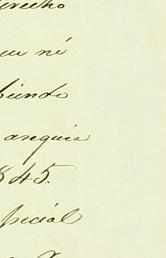 derecho
que ni
biendo
anquia
1845.
pecial